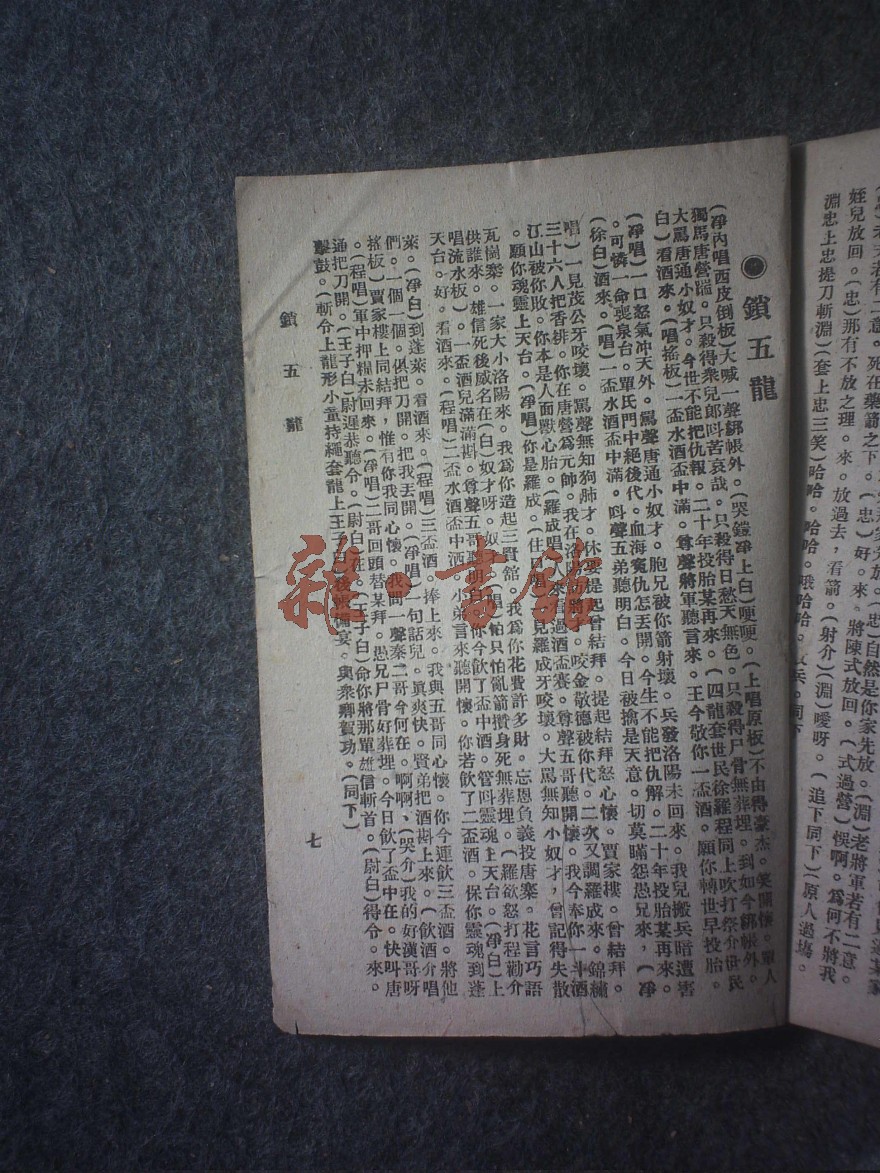 鎖五龍
(淨內唱西皮倒板)大喊一聲綁帳外。(哭鎧淨上白)哽哽。(上唱原板)不由得豪杰。笑開懷。單人
獨馬唐營踹。只殺得衆兒郎呌苦哀哉。只殺得日愁天無色。只殺得尸骨無葬埋。到如今綁帳外。
大罵唐通小奴才。今世不能把仇報。二十年投胎某再來。(四龍套世民徐羅程同上吹打祭介世民
白)看酒來。(唱搖板)一盃水酒盃中滿。尊聲將軍聽言來。王今敬你一盃酒。願你轉世早投胎。
(淨唱)一口怒氣冲天外。罵聲唐通小奴才。胞兄被你箭射壞。兵發洛陽未回來。我兒搬兵暗遭害
。可憐一命喪泉台。單氏門中絕後代。血海寃仇怎丟開。今生不能把仇解。二十年投胎某再來。
(徐白)酒來。(唱)一盃水酒盃中滿。呌聲五弟聽明白。今日被擒是天意。切莫瞞怨愚兄來，(淨
唱)一見茂公牙咬壞。罵聲無知狗肺才。休要提起曾結拜。提起結拜怒心懷。賈家樓。曾結拜。
三十六人把香排。你在唐營爲元帥。我在洛陽 將才。咬金敬德被你代。二次又調羅成來。錦繡
江山被你敗。你本是人面獸心胎。(羅成唱) 來看過酒盃賽。尊聲五哥聽開懷。我今奉你一斗酒
。願你魂靈上天台。(淨唱)你是羅成。(住口唱) 見羅成牙咬壞。大罵無知小奴才，曾記得失散
瓦崗寨。一家大小洛陽來。我爲你造起三賢舘。我爲你花費許多財。忘恩負義投唐寨。花言巧語
供誰來。雄信死後威名在(白)奴才呀。奴 。(唱)怕只怕亂箭攢身死無葬埋。(羅欲怒打程勸介
唱流水板)。一盃酒兒滿滿斟。尊聲五哥聽明白。你今飲了盃中酒。管呌靈魂上天台。(淨白)上
天台。好。看酒來。(程唱)二盃水酒盃中洒。小弟言來聽開懷。你若飲了二盃酒。保你靈魂到蓬
萊。(淨白)到蓬萊。看酒來。(程唱)三盃酒。捧上來。我與五哥同心懷。你今連飲三盃酒。將他
們。一個一個。俱把刀開。把我丟開。(淨唱)一句話兒。眞爽快。賢弟把酒斟上來。(飲酒介唱
搖板)賈家樓上同結拜，惟有你我同心懷。我問一聲秦二哥今何在。啊啊、(哭介)我的好漢哥呀
。(程唱)軍中押糧未回來。(淨唱)二哥回頭替某拜。愚兄尸骨好葬埋。今日飲了盃中在。快叫唐
通把刀開。(王子白)尉遲恭聽令。(尉白)在。(王子白)命你將那單雄信斬首。(尉白)得令。來。
擊鼓。(斬令上龍形小童持繩套龍上王子白)後帳備宴。與衆卿賀功。(同下)
鎖五龍
七
姪兒放回。(忠)那有不放之理。來。放過去，看箭。(射介)(淵)噯呀。(追下同下)(原人過場。
淵忠上忠提刀斬淵)(套上忠三笑)哈哈。哈哈。哦哈哈。